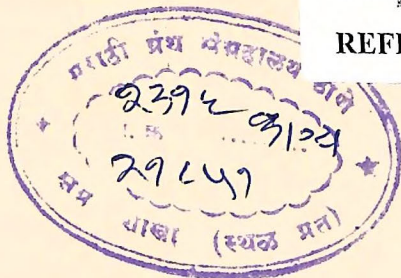 REF
मराठी ग्रंथ संग्रहालय ठाणे
काव्य
२१८५१
शाखा (स्थळ प्रत)